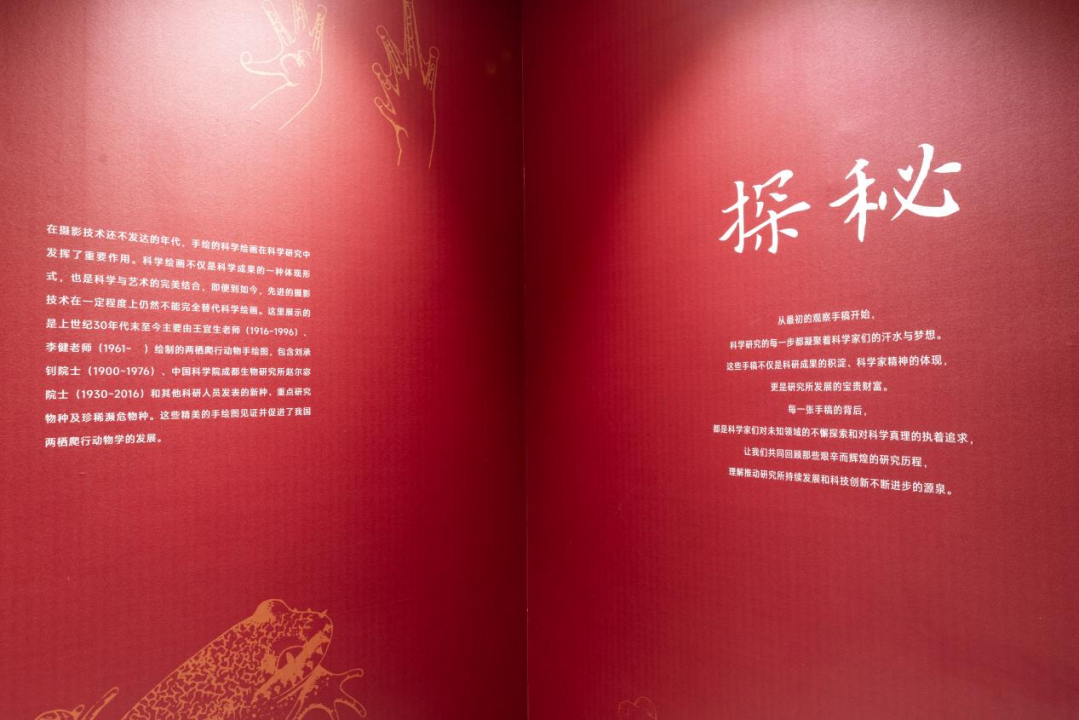 在摄影技术还不发达的年代、手绘的科学绘画在科学研究中
发挥了重要作用。科学绘画不仅是科学成果的一种体现形
式，也是科学与艺术的完美结合，即便到如今，先进的摄影
技术在一定程度上仍然不能完全替代科学绘画。这里展示的
是上世纪30年代末至今主要由王宜生老师（1916-1996）、
李健老师（1961- ）绘制的两栖爬行动物手绘图，包含刘承
钊院士（1900-1976）、中国科学院成都生物研究所赵尔宓
院士（1930-2016）和其他科研人员发表的新种、重点研究
物种及珍稀濒危物种。这些精美的手绘图见证并促进了我国
两栖爬行动物学的发展。
探秘
从最初的观察手稿开始，
科学研究的每一步都凝聚着科学家们的汗水与梦想。
这些手稿不仅是科研成果的积淀、科学家精神的体现，
更是研究所发展的宝贵财富。
每一张手稿的背后，
都是科学家们对未知领域的不懈探索和对科学真理的执着追求，
让我们共同回顾那些艰辛而辉煌的研究历程，
理解推动研究所持续发展和科技创新不断进步的源泉。